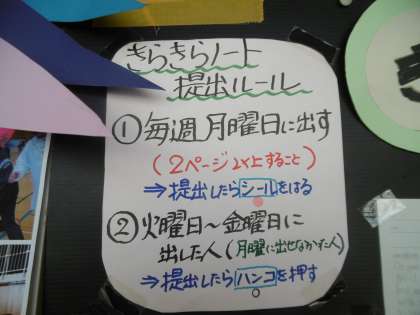 きらきらノート
提出ルール
①毎週月曜日に出す
(2ページ以上すること)
⇒提出したらシールをはる
②火曜日～金曜日に
出した人(月曜に出せなかった人)
⇒提出したらハンコを押す